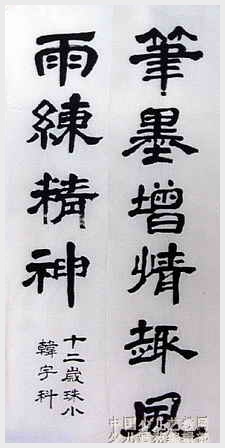 筆墨增情趣風
雨練精神
十二歲珠小
韓字科